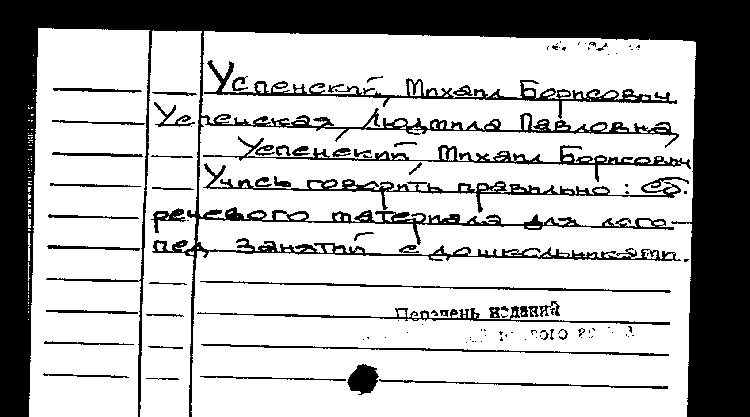 Успенский, Михаил Борисович
Успенская, Людмила Павловна,
Успенский, Михаил Борисович
Учись говорить правильно: Сб.
речевого материала для лого-
пед. занятий с дошкольниками.
Перечень изданий